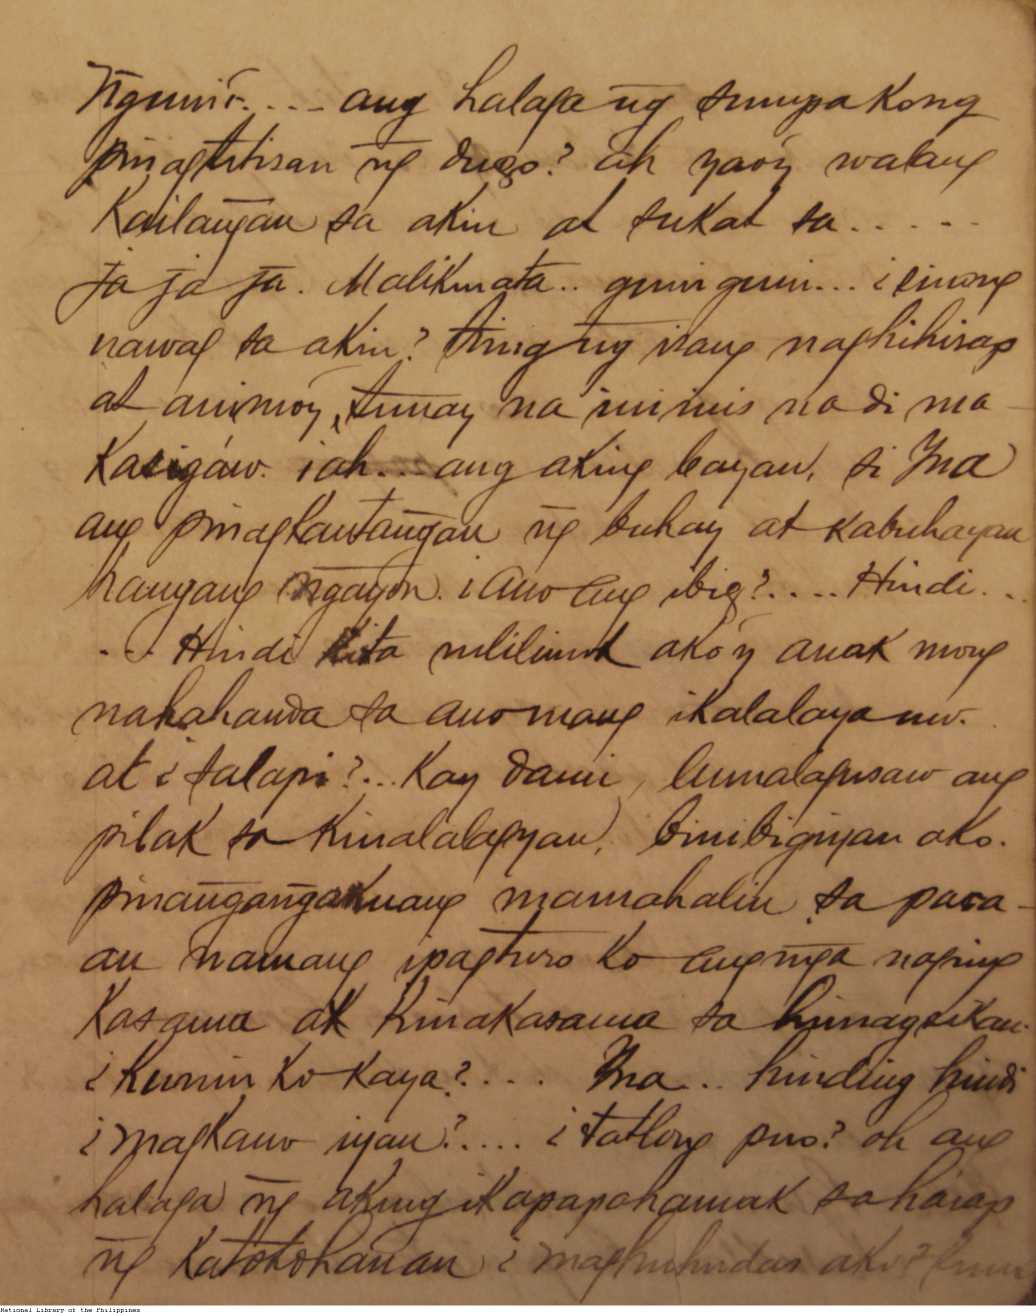 Ng̃uni't.... ang halaga ng̃ sumpa kong
pinagtitisan ng̃ dugo? ah yao'y walang
Kailang̃an sa akin at sukat sa.....
ja ja ja. Malikmata.. guni guni... ¿sinong
nawag sa akin? tinig ng̃ isang naghihirap
at animo'y tunay na inimis na di ma-
Kasigáw. ¡ah... ang aking bayan, si Ina
ang pinagkautang̃an ng̃ buhay at kabuhayan
hangang ng̃ayon. ¿Ano ang ibig?.... Hindi...
... Hindi kita nililimot ako'y anak mong
nahahanda sa anomang ikalalaya mo.
at ¿salapi?... Kay dami, lumalagusaw ang
pilak sa kinalalagyan, binibigyan ako.
pinang̃ang̃akuang mamahalin sa para-
an namang ipagturo ko ang mg̃a naging
Kasama at Kinakasama sa himagsikan.
¿Kunin ko kaya?.... Ina.. hinding hindi
¿magkano iyan?.... ¿tatlong puo? oh ang
halaga ng̃ aking ikapapahamak sa harap
ng̃ katotohanan ¿maghuhudas ako?
National Library of the Philippines